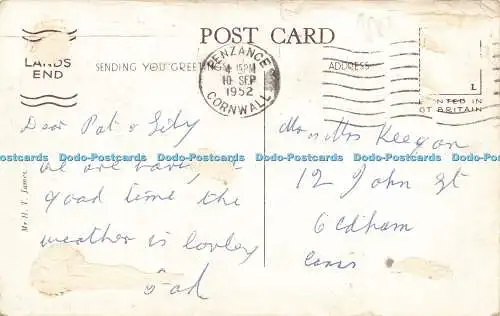 POST CARD
LANDS
END
SENDING YOU GREETINGS
PENZANCE
4 15PM
10 SEP
1952
CORNWALL
ADDRESS
L
PRINTED IN
GT BRITAIN
Dear Pat &
we are having a
good time the
weather is lovley
Dad
Mr H. T. James.
Mr & Mrs Keegan
12 John St
Oldham
Lancs
Dodo-Postcards Dodo-Postcards Dodo-Postcards Dodo-Postcards Dodo-Postcards Dodo-Postcards